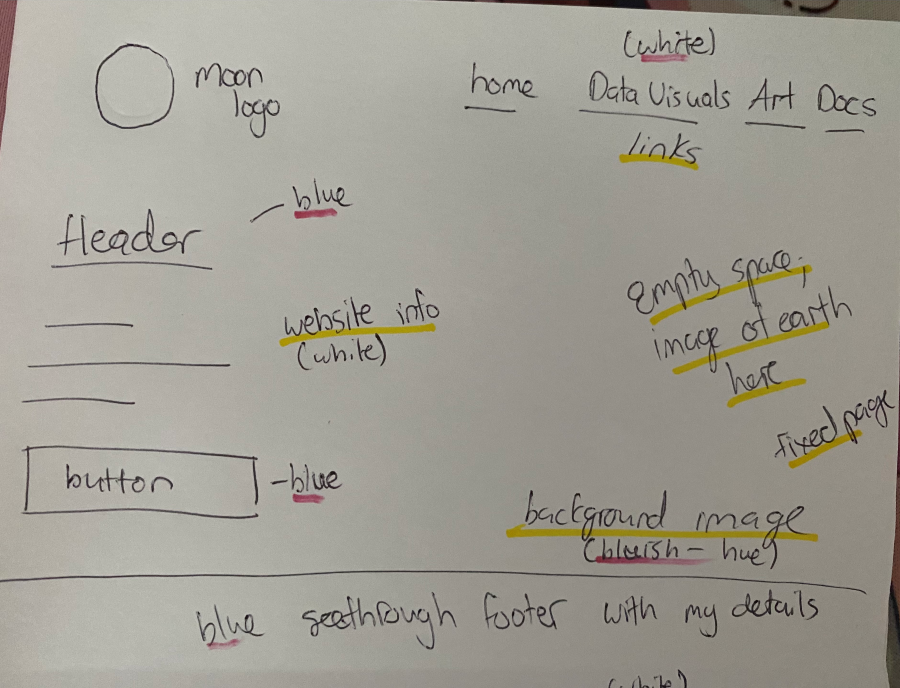 (white)
moon
logo
home Data Visuals Art Docs
links
blue
Header
website info
(white)
Empty space,
image of earth
here
fixed page
button
-blue
background image
(blueish - hue)
blue seethrough footer with my details
(white)